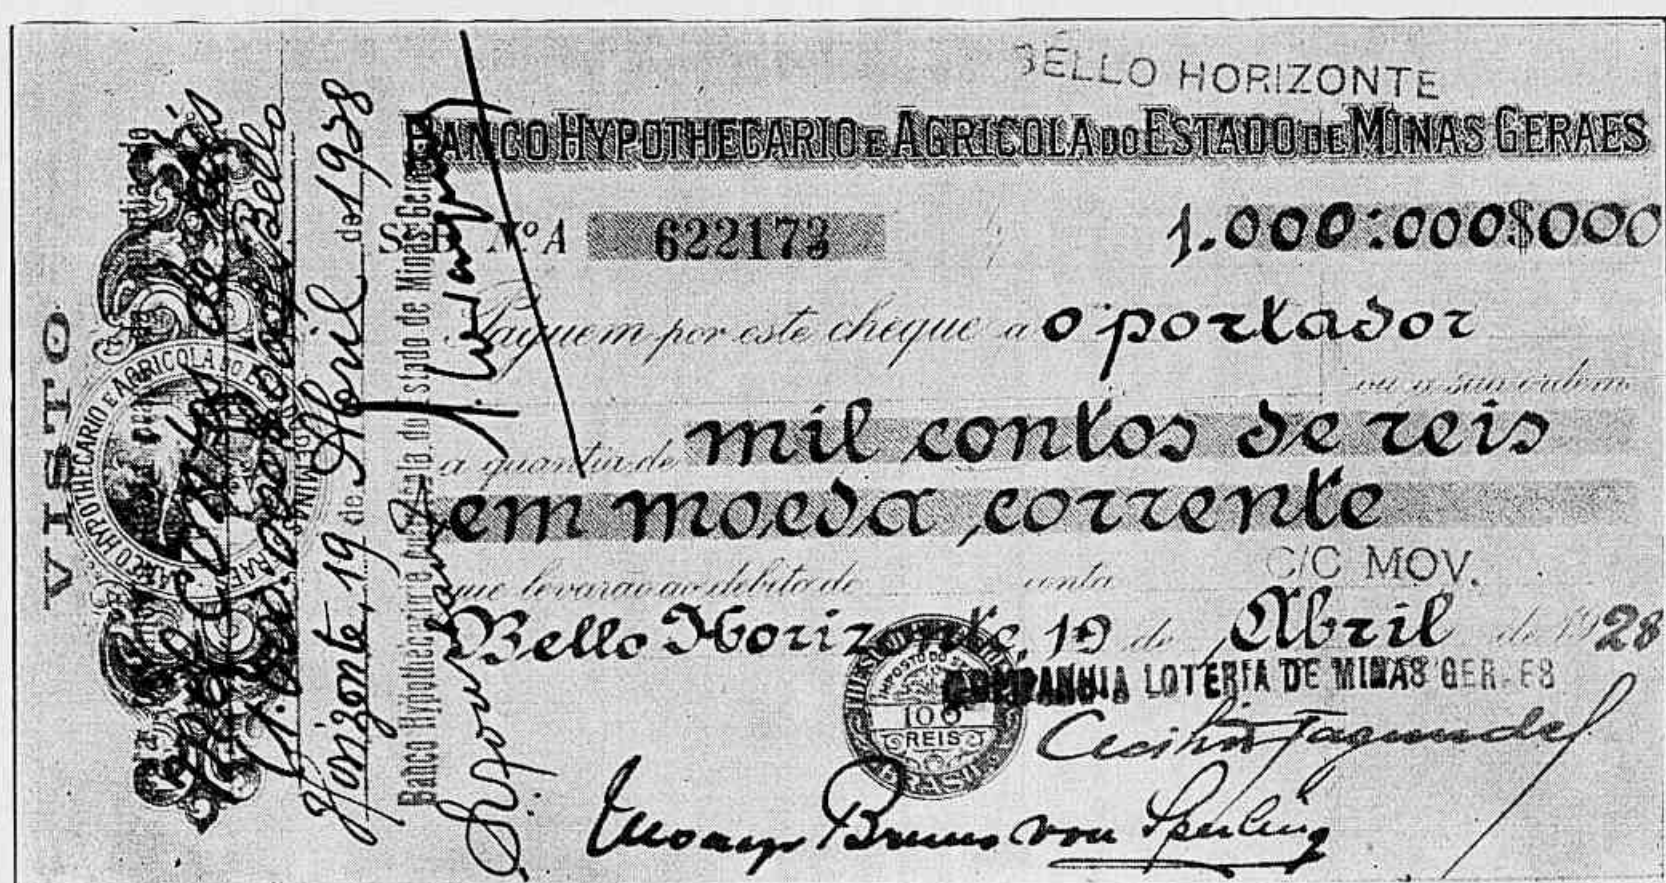 BELLO HORIZONTE
BANCO HYPOTHECARIO E AGRICOLA DO ESTADO DE MINAS GERAES
S. B. Nº A 622173 1.000:000$000
Paguem por este cheque a o portador
ou a sua ordem
a quantia de mil contos de reis
em moeda corrente
que levarão ao debito de conta C/C MOV.
Bello Horizonte, 19 de Abril de 1928
COMPANHIA LOTERIA DE MINAS GERAES
IMPOSTO DO
100
REIS
BRASIL
Bruno von Sperling
VISTO
BANCO HYPOTHECARIO E AGRICOLA DO
Bello
Horizonte, 19 de Abril de 1928
Banco Hypothecario e Agricola do Estado de Minas Geraes